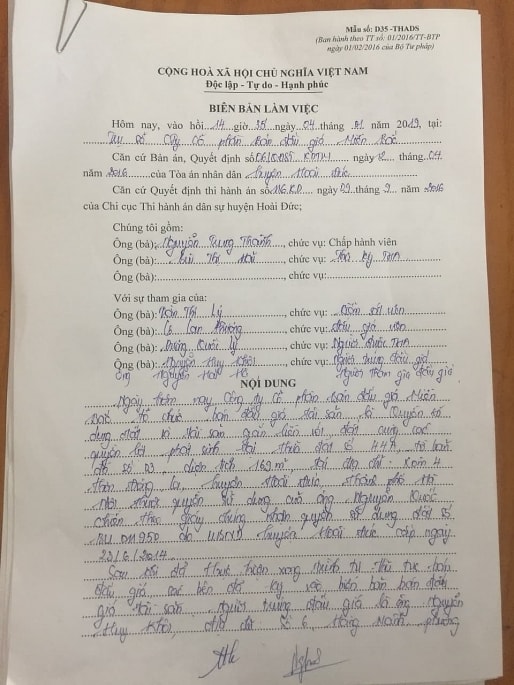 Mẫu số: D35 -THADS
(Ban hành theo TT số: 01/2016/TT-BTP
ngày 01/02/2016 của Bộ Tư pháp)
CỘNG HOÀ XÃ HỘI CHỦ NGHĨA VIỆT NAM
Độc lập - Tự do - Hạnh phúc
BIÊN BẢN LÀM VIỆC
Hôm nay, vào hồi 14 giờ 35 ngày 04 tháng 01 năm 2019, tại:
Trụ sở Cty Cổ phần bán đấu giá Miền Bắc
Căn cứ Bản án, Quyết định số ngày 12 tháng 04
năm 2016 của Tòa án nhân dân huyện Hoài Đức
Căn cứ Quyết định thi hành án số ngày tháng 9 năm 2016
của Chi cục Thi hành án dân sự huyện Hoài Đức;
Chúng tôi gồm:
Ông (bà): Nguyễn Trung Thành, chức vụ: Chấp hành viên
Ông (bà): Thị, chức vụ: Thư ký
Ông (bà):, chức vụ:
Với sự tham gia của:
Ông (bà): Thị Lý, chức vụ: Kiểm sát viên
Ông (bà): Lê Lan Phương, chức vụ: đấu giá viên
Ông (bà): Quốc, chức vụ: Người được
Ông (bà): Nguyễn Huy Khôi, chức vụ: Người trúng đấu giá
Ông Nguyễn Người tham gia đấu giá
NỘI DUNG
Ngày hôm nay, Công ty Cổ phần bán đấu giá Miền
Bắc tổ chức bán đấu giá tài sản là Quyền sử
dụng đất và tài sản gắn liền với đất cùng các
quyền lợi phát sinh tại thửa đất số 44A, tờ bản
đồ số 03, diện tích 169 m², tại địa chỉ: Km 4
thôn, huyện Hoài Đức, thành phố Hà
Nội thuộc quyền sử dụng của ông Nguyễn Quốc
theo giấy chứng nhận quyền sử dụng đất số
BU 011950 do UBND huyện Hoài Đức cấp ngày
23/6/2014.
Sau khi đã thực hiện xong trình tự thủ tục bán
đấu giá các bên đã ký vào biên bản bán đấu
giá tài sản, người trúng đấu giá là ông Nguyễn
Huy Khôi, địa chỉ số 6, Hàng Mành, phường